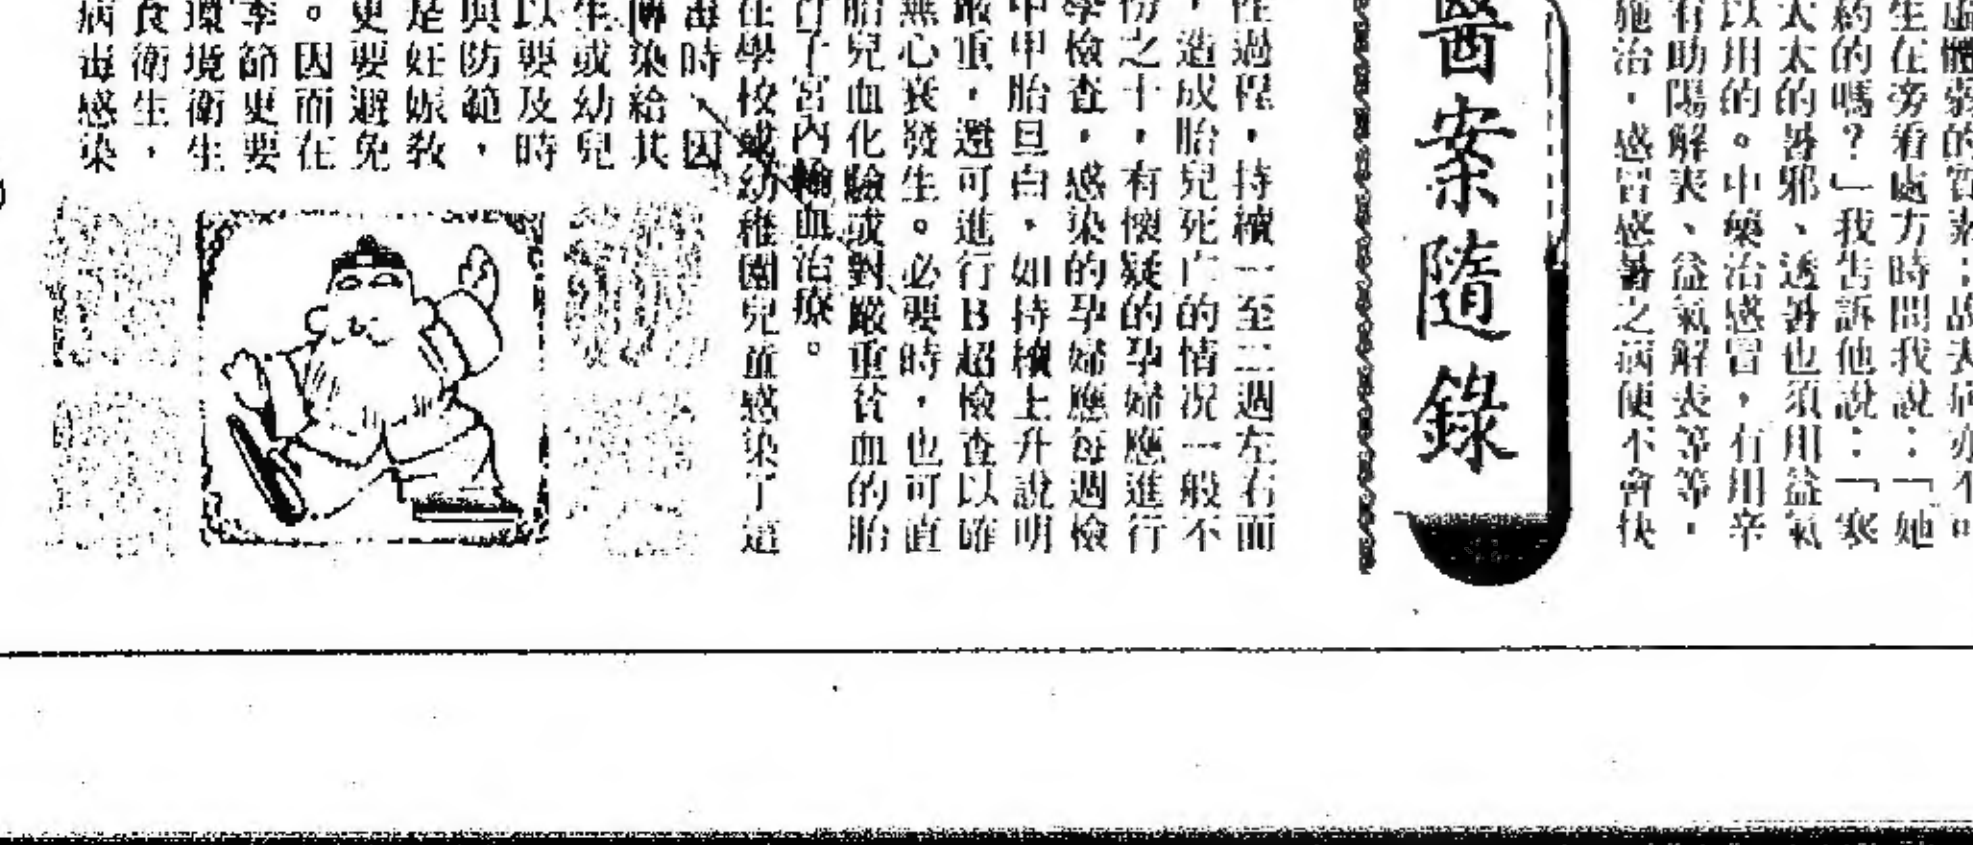 虛體弱的質素；故夫病亦不可
生在旁看處方時問我說：「她
約的嗎？」我告訴他說：「寒
太太的暑邪、透暑也須用益氣
以用的。中藥治感冒，有用辛
有助陽解表、益氣解表等等，
施治，感冒感暑之病便不會快
醫案隨錄
性過程，持續一至三週左右而
，造成胎兒死亡的情況一般不
份之十，有懷疑的孕婦應進行
學檢查，感染的孕婦應每週檢
中甲胎旦白，如持續上升說明
嚴重，還可進行B超檢查以確
無心衰發生。必要時，也可直
胎兒血化驗或對嚴重貧血的胎
行子宮內輸血治療。
在學校或幼稚園兒童感染了這
毒時，因
傳染給其
生或幼兒
以要及時
與防範，
是妊娠教
更要避免
。因而在
季節更要
環境衛生
食衛生，
病毒感染